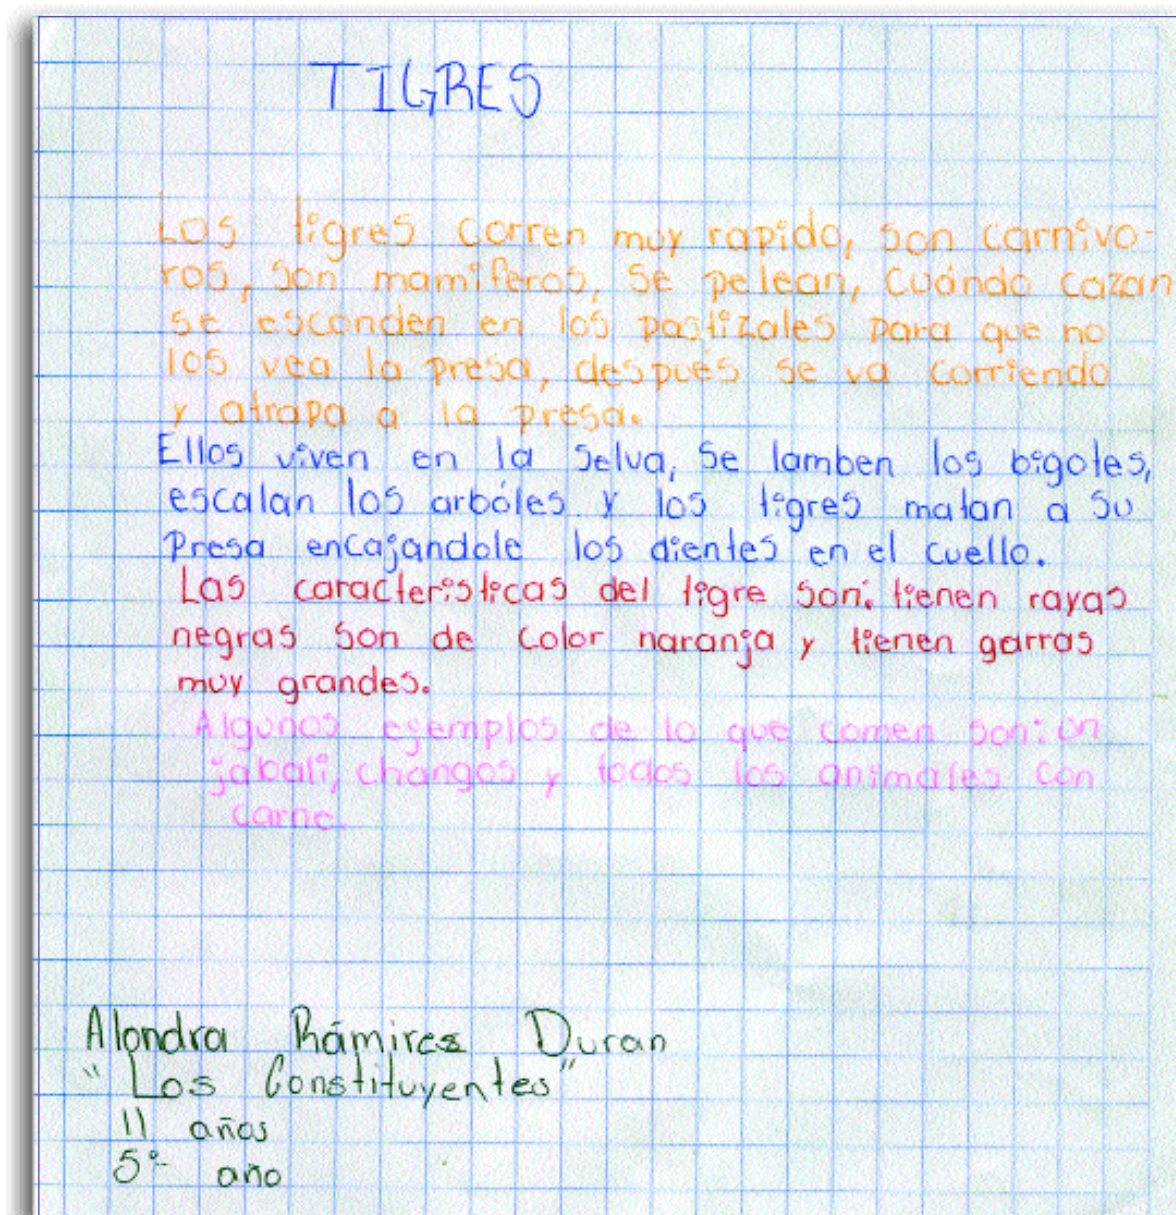 TIGRES
Los tigres corren muy rapido, son carnivo-
ros, son mamiferos, se pelean, cuándo cazan
se esconden en los pastizales para que no
los vea la presa, después se va corriendo
y atrapa a la presa.
Ellos viven en la selva, se lamben los bigotes,
escalan los arbóles y los tigres matan a su
presa encajandole los dientes en el cuello.
Las caracteristicas del tigre son: tienen rayas
negras son de color naranja y tienen garras
muy grandes.
Algunos ejemplos de lo que comen son: un
jabali, changos y todos los animales con
carne.
Alondra Rámires Duran
"Los Constituyentes"
11 años
5º año